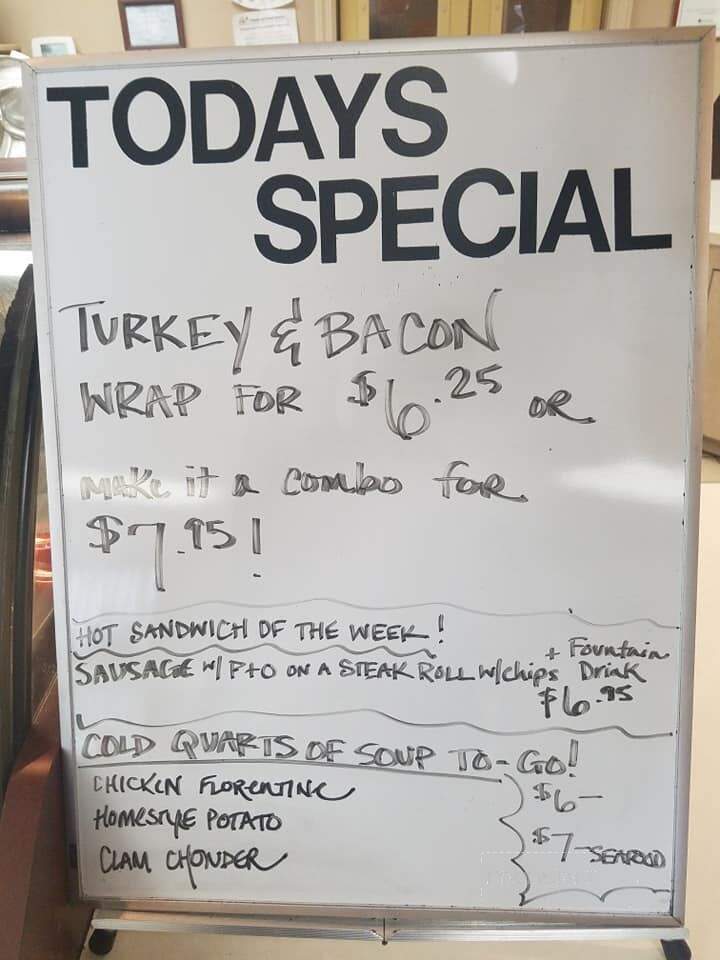 TODAYS
SPECIAL
TURKEY & BACON
WRAP FOR $6.25 OR
make it a combo for
$7.95!
HOT SANDWICH OF THE WEEK!
SAUSAGE W/ P+O ON A STEAK ROLL W/chips + Fountain Drink
$6.95
COLD QUARTS OF SOUP TO-GO!
CHICKEN FLORENTINE
HOMESTYLE POTATO
CLAM CHOWDER
$6-
$7-SEAFOOD